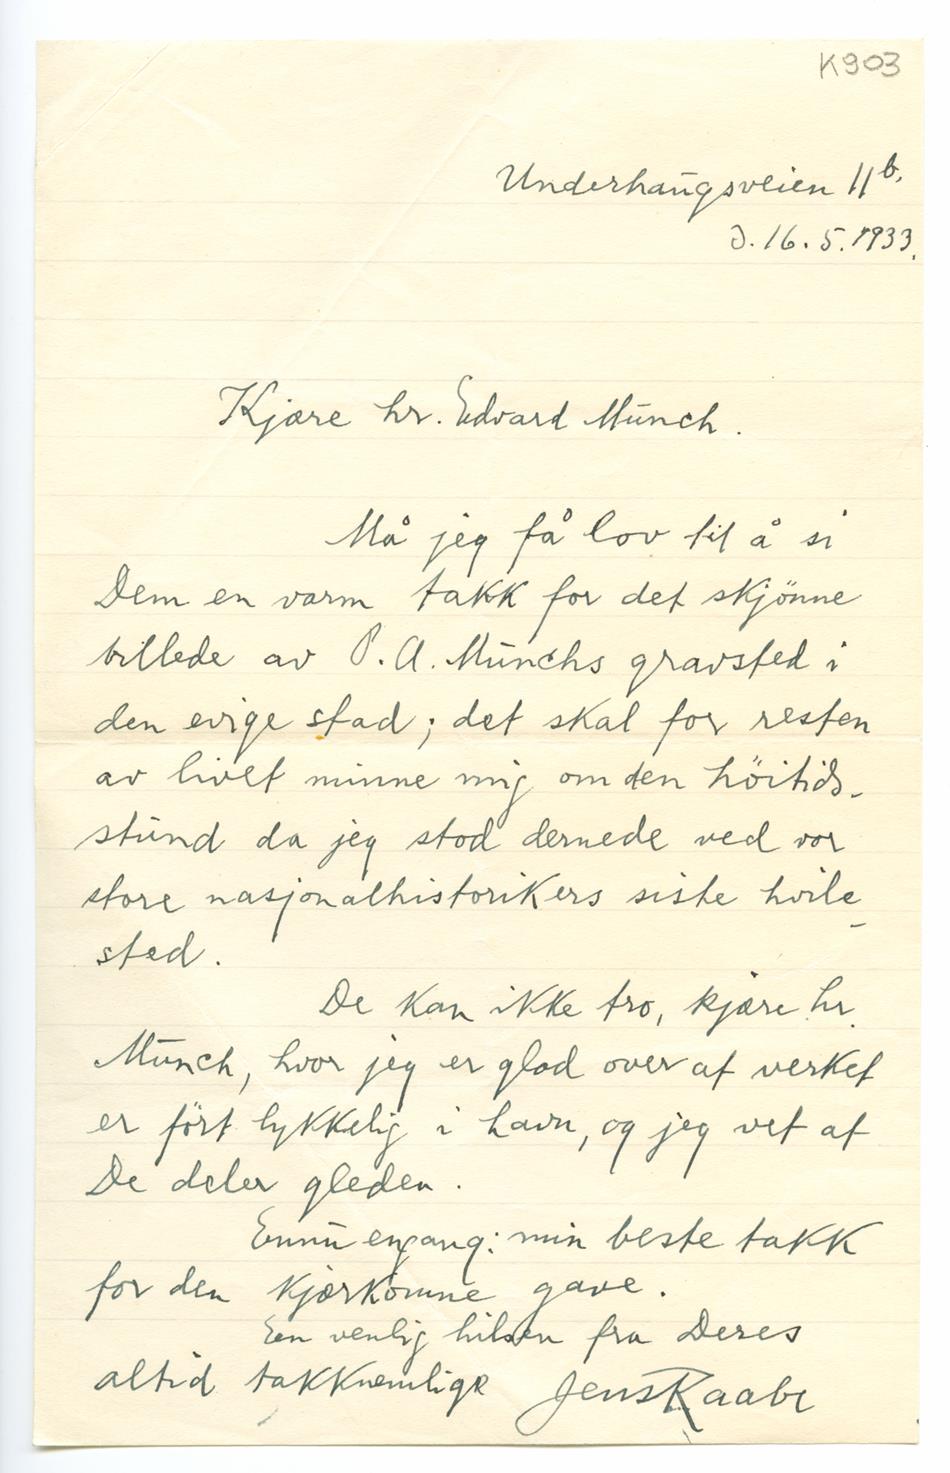 K903
Underhaugsveien 11b.
d. 16. 5. 1933.
Kjære hr. Edvard Munch.
Må jeg få lov til å si
Dem en varm takk for det skjönne
billede av P. A. Munchs gravsted i
den evige stad; det skal for resten
av livet minne mig om den höitids-
stund da jeg stod dernede ved vor
store nasjonalhistorikers siste hvile-
sted.
De kan ikke tro, kjære hr.
Munch, hvor jeg er glad over at verket
er fört lykkelig i havn, og jeg vet at
De deler gleden.
Ennu engang: min beste takk
for den kjærkomne gave.
Een venlig hilsen fra Deres
altid takknemlige Jens Raabe